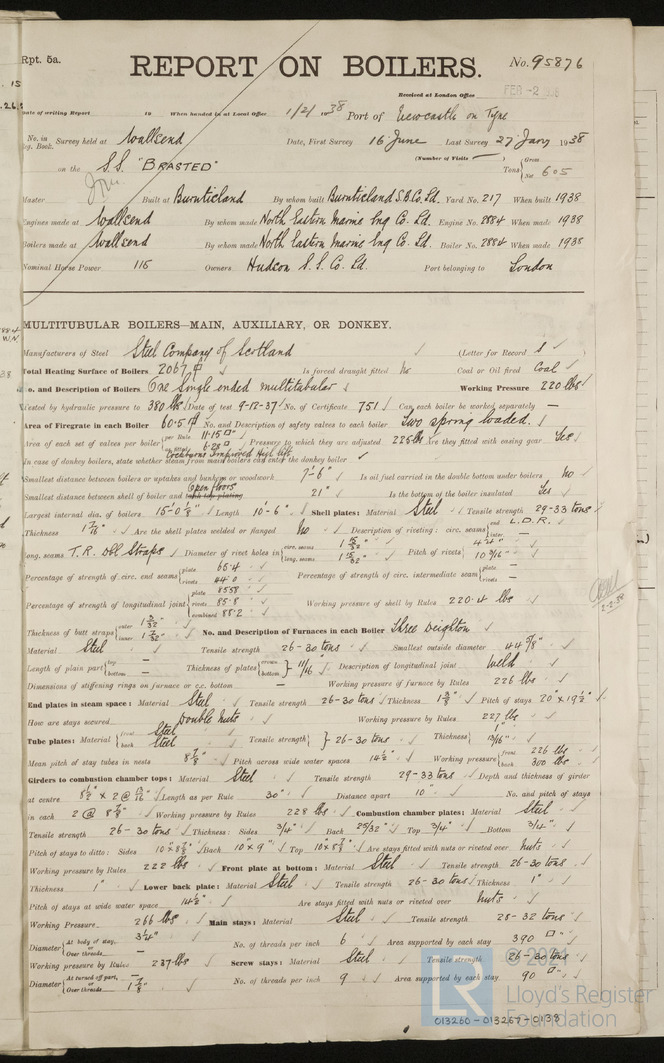 Rpt. 5a.
REPORT ON BOILERS.
No. 95876
Received at London Office FEB -2 1938
Date of writing Report 19 When handed in at Local Office 1/2/ 1938 Port of Newcastle on Tyne
No. in Reg. Book. Survey held at Wallsend Date, First Survey 16 June Last Survey 27 Jany 1938
(Number of Visits —)
on the S.S. "BRASTED" Tons { Gross Net 605
Master Built at Burntisland By whom built Burntisland S.B. Co. Ld. Yard No. 217 When built 1938
Engines made at Wallsend By whom made North Eastern Marine Eng Co. Ld. Engine No. 2884 When made 1938
Boilers made at Wallsend By whom made North Eastern Marine Eng Co. Ld. Boiler No. 2884 When made 1938
Nominal Horse Power 116 Owners Hudson S. S. Co. Ld. Port belonging to London
MULTITUBULAR BOILERS—MAIN, AUXILIARY, OR DONKEY.
Manufacturers of Steel Steel Company of Scotland (Letter for Record S)
Total Heating Surface of Boilers 2067 Is forced draught fitted No Coal or Oil fired Coal
No. and Description of Boilers One Single ended multitubular Working Pressure 220 lbs
Tested by hydraulic pressure to 380 lbs Date of test 9-12-37 No. of Certificate 751 Can each boiler be worked separately —
Area of Firegrate in each Boiler 60.5 No. and Description of safety valves to each boiler Two spring loaded.
Area of each set of valves per boiler { per Rule 11.15 as fitted 6.28 Pressure to which they are adjusted 225 lb Are they fitted with easing gear Yes
Cockburns Improved High Lift
In case of donkey boilers, state whether steam from main boilers can enter the donkey boiler
Smallest distance between boilers or uptakes and bunkers or woodwork 7'-6" Is oil fuel carried in the double bottom under boilers No
Smallest distance between shell of boiler and tank top plating Open floors 21" Is the bottom of the boiler insulated Yes
Largest internal dia. of boilers 15'-0 1/8" Length 10'-6" Shell plates: Material Steel Tensile strength 29-33 tons
Thickness 1 7/16" Are the shell plates welded or flanged No Description of riveting: circ. seams { end L.D.R. inter. —
long. seams T.R. Dbl Straps Diameter of rivet holes in { circ. seams 1 15/32" long. seams 1 15/32" Pitch of rivets { 10 9/16"
Percentage of strength of circ. end seams { plate 65.4 rivets 44.0 Percentage of strength of circ. intermediate seam { plate — rivets —
Percentage of strength of longitudinal joint { plate 85.58 rivets 85.8 combined 88.2 Working pressure of shell by Rules 220.4 lbs
Thickness of butt straps { outer 1 3/32" inner 1 7/32" No. and Description of Furnaces in each Boiler Three Deighton
Material Steel Tensile strength 26-30 tons Smallest outside diameter 44 5/8"
Length of plain part { top — bottom — Thickness of plates { crown bottom } 11/16 Description of longitudinal joint Weld
Dimensions of stiffening rings on furnace or c.c. bottom — Working pressure of furnace by Rules 226 lbs
End plates in steam space: Material Steel Tensile strength 26-30 tons Thickness 1 3/8" Pitch of stays 20" x 19 1/2"
How are stays secured Double nuts Working pressure by Rules 227 lbs
Tube plates: Material { front Steel back Steel Tensile strength { } 26-30 tons Thickness { 1" 13/16"
Mean pitch of stay tubes in nests 8 7/8" Pitch across wide water spaces 14 1/2" Working pressure { front 226 lbs back 300 lbs
Girders to combustion chamber tops: Material Steel Tensile strength 29-33 tons Depth and thickness of girder
at centre 8 1/2" x 2 @ 13/16" Length as per Rule 30" Distance apart 10" No. and pitch of stays
in each 2 @ 8 7/8" Working pressure by Rules 228 lbs Combustion chamber plates: Material Steel
Tensile strength 26-30 tons Thickness: Sides 3/4" Back 25/32" Top 3/4" Bottom 3/4"
Pitch of stays to ditto: Sides 10" x 8 7/8" Back 10" x 9" Top 10 x 8 7/8" Are stays fitted with nuts or riveted over Nuts
Working pressure by Rules 222 lbs Front plate at bottom: Material Steel Tensile strength 26-30 tons
Thickness 1" Lower back plate: Material Steel Tensile strength 26-30 tons Thickness 1"
Pitch of stays at wide water space 14 1/2" Are stays fitted with nuts or riveted over Nuts
Working Pressure 266 lbs Main stays: Material Steel Tensile strength 28-32 tons
Diameter { At body of stay, or Over threads 3 1/4" — No. of threads per inch 6 Area supported by each stay 390
Working pressure by Rules 237 lbs Screw stays: Material Steel Tensile strength 26-30 tons
Diameter { At turned off part, or Over threads — 1 7/8" No. of threads per inch 9 Area supported by each stay 90
© 2021
LR
Lloyd's Register
Foundation
013260-013267-0138